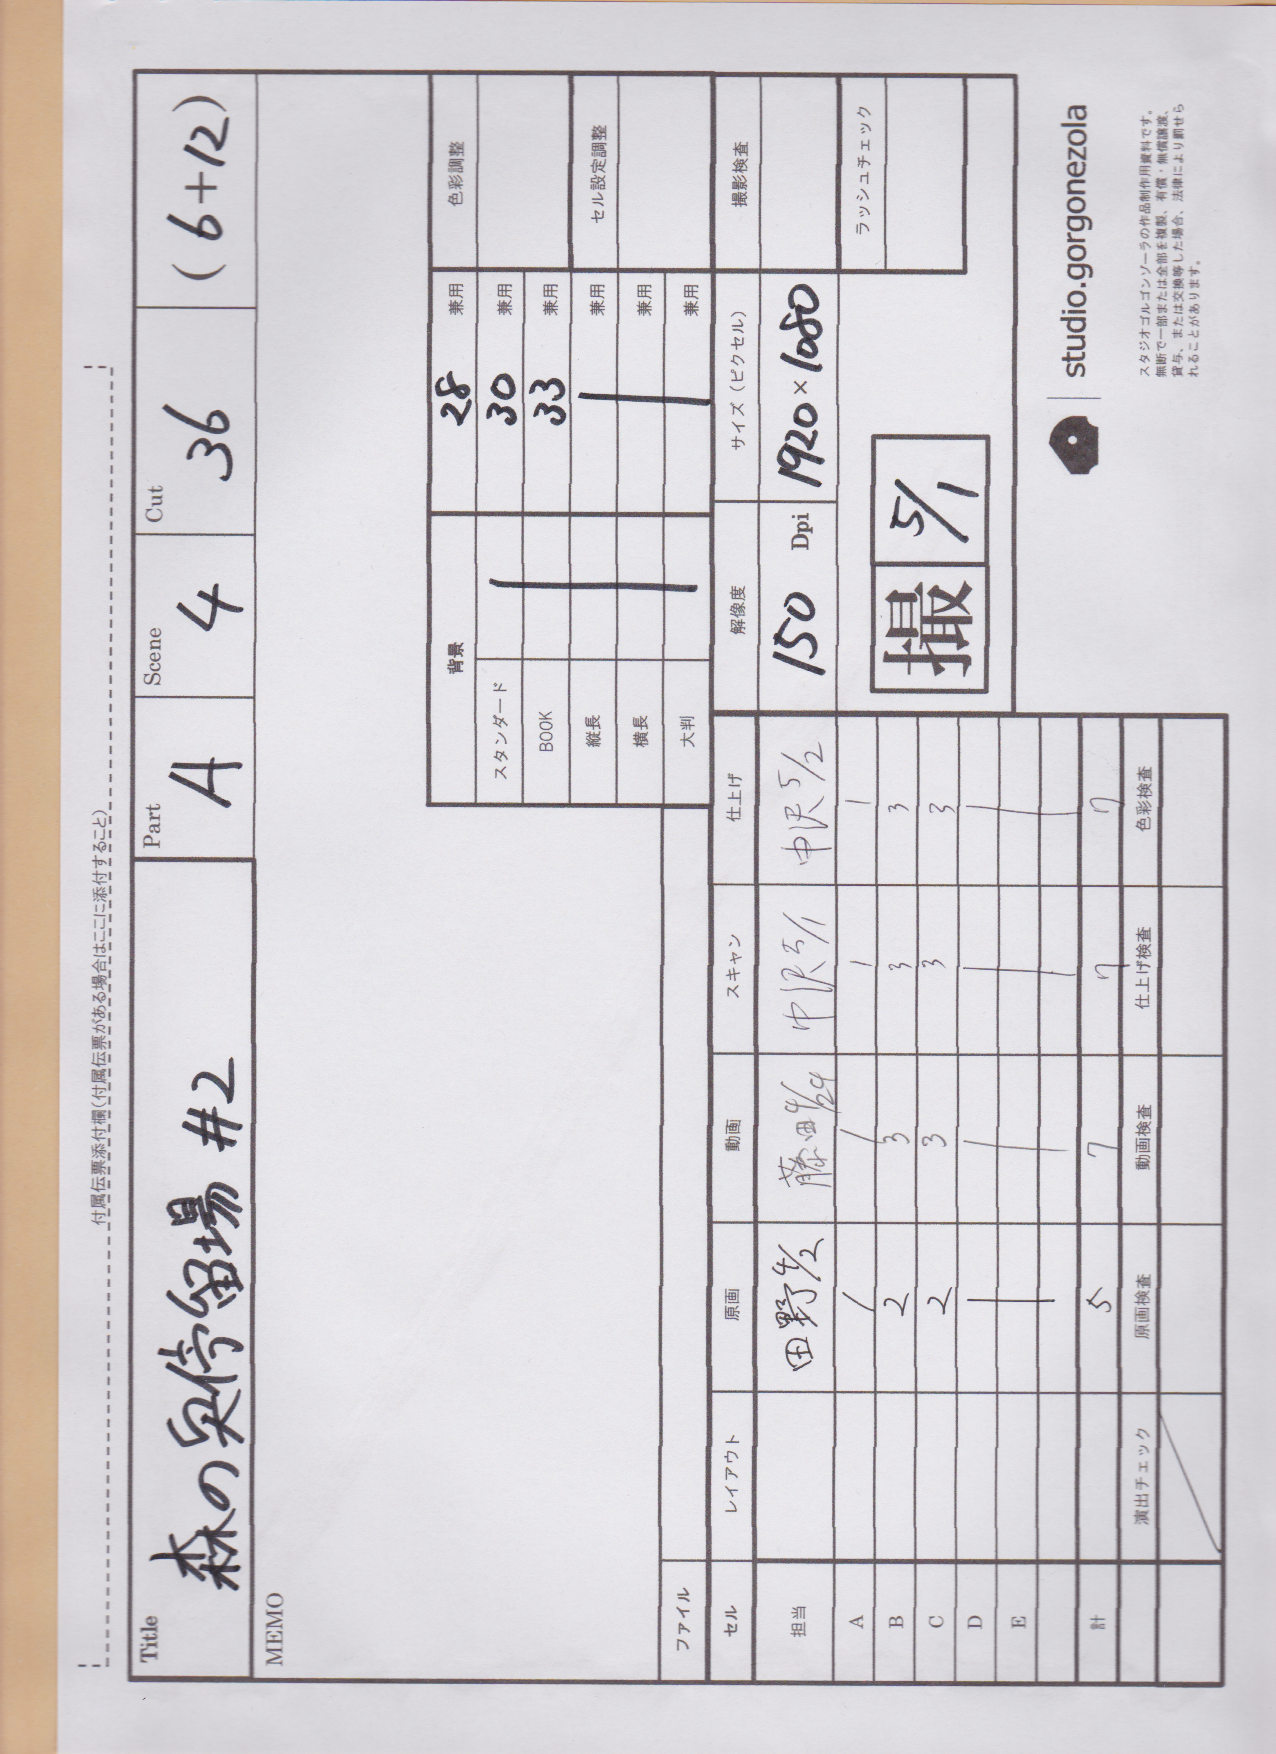 付属伝票添付欄(付属伝票がある場合はここに添付すること)
Title 森の奥停留場 #2
Part A
Scene 4
Cut 36
(6+12)
MEMO
背景 28 兼用 色彩調整
スタンダード 30 兼用
BOOK 33 兼用
縦長 兼用 セル設定調整
横長 兼用
大判 兼用
ファイル
解像度 サイズ(ピクセル) 撮影検査
150 Dpi 1920×1080
ラッシュチェック
撮 5/1
セル レイアウト 原画 動画 スキャン 仕上げ
担当 田野 4/2 藤田 4/29 中沢 5/1 中沢 5/2
A 1 1 1 1
B 2 3 3 3
C 2 3 3 3
D
E
計 5 7 7 7
演出チェック 原画検査 動画検査 仕上げ検査 色彩検査
studio.gorgonezola
スタジオゴルゴンゾーラの作品制作用資料です。
無断で一部または全部を複製、有償・無償譲渡、
貸与、または交換等した場合、法律により罰せら
れることがあります。